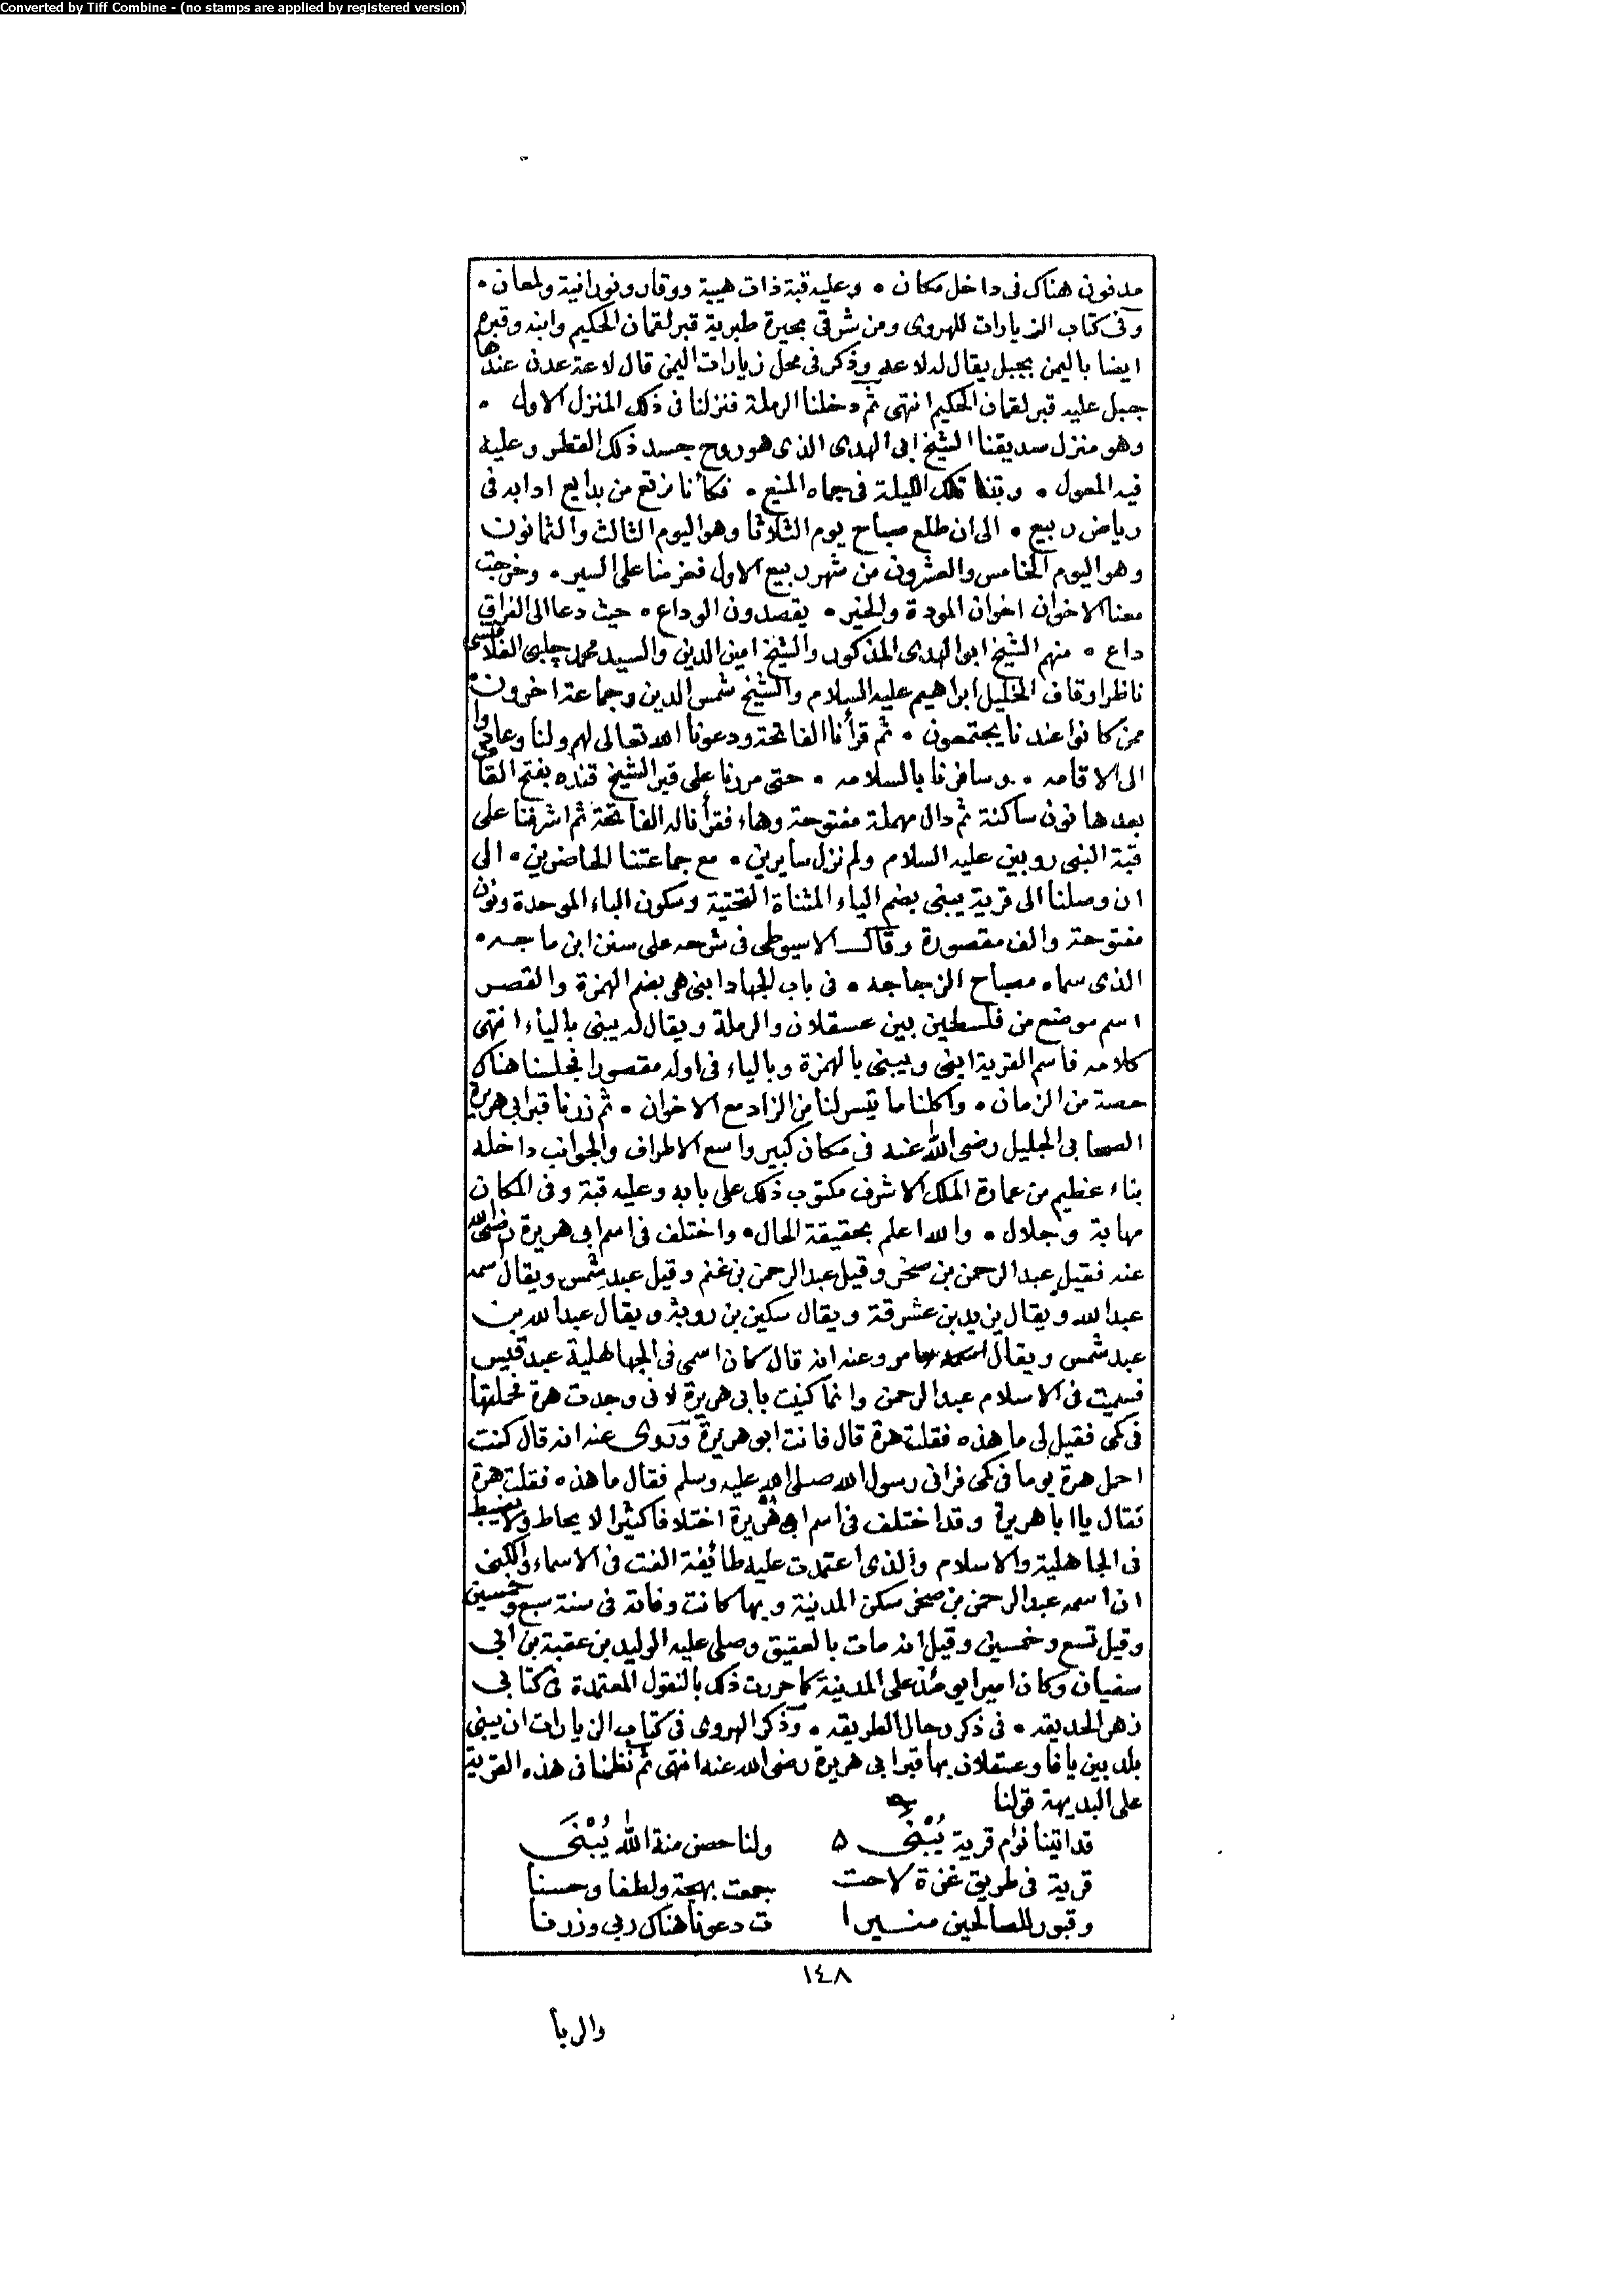 Converted by Tiff Combine - (no stamps are applied by registered version)
مدفون هناك فى داخل مكان • وعليه قبة ذات هيبة ووقار ونورانية ولمعان •
وفى كتاب الزيارات للهروى ومن شرقى بحيرة طبرية قبر لقمان الحكيم وابنه وقبره
ايضا باليمن بجبل يقال له لاعه وذكر فى محل زيارات اليمن قال لاعة عدن عندها
جبل عليه قبر لقمان الحكيم انتهى ثم دخلنا الرملة فنزلنا فى ذلك المنزل الاول •
وهو منزل صديقنا الشيخ ابى الهدى الذى هو روح جسد ذلك القطر وعليه
فيه المعول • وبتنا تلك الليلة فى حماه المنيع • فكأنا نرتع من بدايع ادابه فى
رياض ربيع • الى ان طلع صباح يوم الثلاثا وهو اليوم الثالث والثمانون
وهو اليوم الخامس والعشرون من شهر ربيع الاول فعزمنا على السير • وخرجت
معنا الاخوان اخوان المودة والخير • يقصدون الوداع • حيث دعا الى الفراق
داع • منهم الشيخ ابو الهدى المذكور والشيخ امين الدين والسيد محمد چلبى
ناظر اوقاف الخليل ابراهيم عليه السلام والشيخ شمس الدين وجماعة اخرون
ممن كانوا عندنا يجتمعون • ثم قرأنا الفاتحة ودعونا الله تعالى لهم ولنا وعادوا
الى الاقامه • وسافرنا بالسلامه • حتى مررنا على قبر الشيخ قنده بفتح القاف
بعدها نون ساكنة ثم دال مهملة مفتوحة وهاء فقرأنا له الفاتحة ثم اشرفنا على
قبة النبى روبين عليه السلام ولم نزل سايرين • مع جماعتنا الحاضرين • الى
ان وصلنا الى قرية يبنى بضم الياء المثناة التحتية وسكون الباء الموحدة ونون
مفتوحة والف مقصورة وقال الاسيوطى فى شرحه على سنن ابن ماجه •
الذى سماه مصباح الزجاجه • فى باب الجهاد ابنى هى بضم الهمزة والقصر
اسم موضع من فلسطين بين عسقلان والرملة ويقال له يبنى بالياء انتهى
كلامه فاسم القرية ابنى ويبنى بالهمزة وبالياء فى اوله مقصورا فجلسنا هناك
حصة من الزمان • واكلنا ما تيسر لنا من الزاد مع الاخوان • ثم زرنا قبر ابى هريرة
الصحابى الجليل رضى الله عنه فى مكان كبير واسع الاطراف والجوانب داخله
بناء عظيم من عمارة الملك الاشرف مكتوب ذلك على بابه وعليه قبة وفى المكان
مهابة وجلال • والله اعلم بحقيقة الحال • واختلف فى اسم ابى هريرة رضى الله
عنه فقيل عبد الرحمن بن صخر وقيل عبد الرحمن بن غنم وقيل عبد شمس ويقال اسمه
عبد الله ويقال يزيد بن عشرقة ويقال سكين بن روبة ويقال عبد الله بن
عبد شمس ويقال عامر وعنه انه قال كان اسمى فى الجاهلية عبد قيس
فسميت فى الاسلام عبد الرحمن وانما كنيت بابى هريرة لانى وجدت هرة فحملتها
فى كمى فقيل لى ما هذه فقلت هرة قال فانت ابو هريرة وروى عنه انه قال كنت
احمل هرة يوما فى كمى فرانى رسول الله صلى الله عليه وسلم فقال ما هذه فقلت هرة
فقال يا ابا هريرة وقد اختلف فى اسم ابى هريرة اختلافا كثيرا لا يحاط ولا يضبط
فى الجاهلية والاسلام والذى اعتمدت عليه طائفة الفت فى الاسماء والكنى
ان اسمه عبد الرحمن بن صخر سكن المدينة وبها كانت وفاته فى سنة سبع وخمسين
وقيل تسع وخمسين وقيل انه مات بالعقيق وصلى عليه الوليد بن عقبة بن ابى
سفيان وكان اميرا يومئذ على المدينة كما حررت ذلك بالنقول المعتمدة فى كتابى
زهر الحديقه • فى ذكر رجال الطريقه • وذكر الهروى فى كتاب الزيارات ان يبنى
بلد بين يافا وعسقلان بها قبر ابى هريرة رضى الله عنه انتهى ثم نظمنا فى هذه القرية
على البديهة قولنا
قد اتينا نؤم قرية يُبْنَى ولنا حصن منة الله يُبْنَى
قرية فى طريق غزة لاحت جمعت بهجة ولطفا وحسنا
وقبور للصالحين منيرا ت دعونا هناك ربى وزرنا
١٤٨